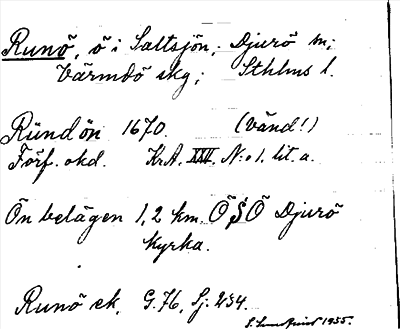 Runö, ö i Saltsjön; Djurö sn;
Värmdö skg; Sthlms l.
Ründön 1670. (Vänd!)
Förf. okd. KrA. XXVI. N:o 1. lit. a.
Ön belägen 1,2 km. ÖSÖ Djurö
kyrka.
Runö ek. G. 76, Sj: 234.
S. Lundqvist 1935.